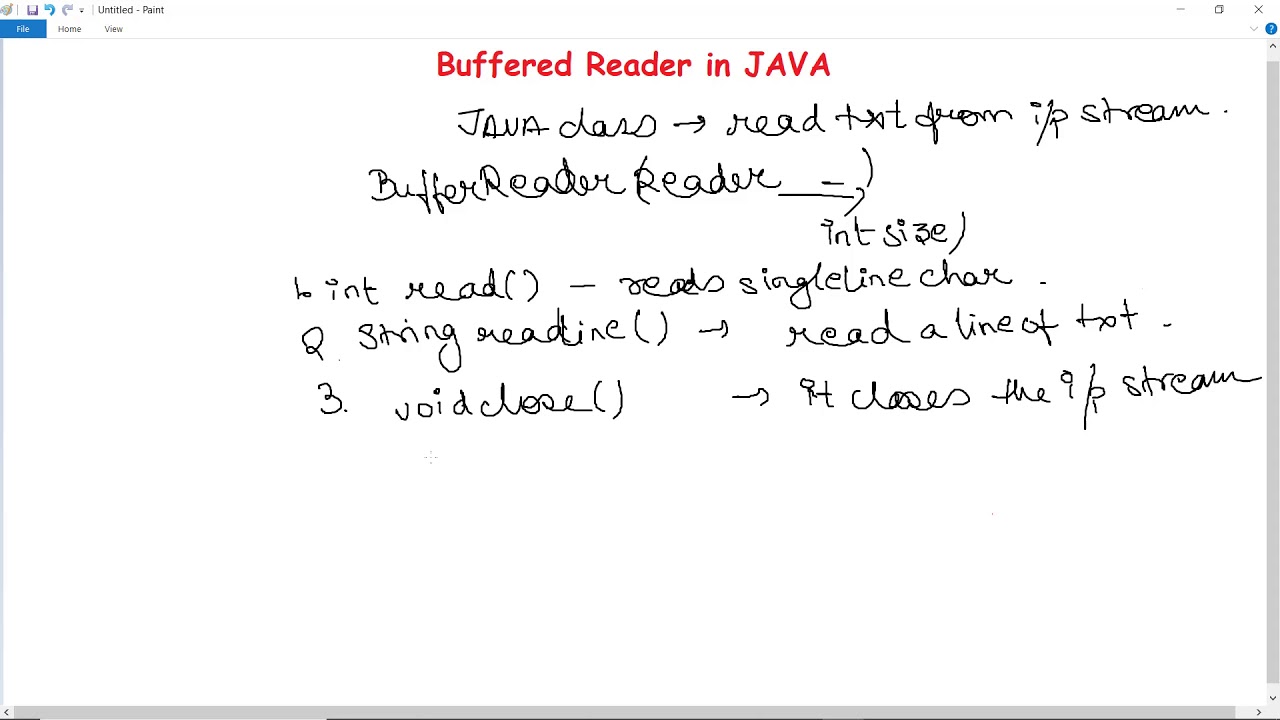 Untitled - Paint
File Home View
Buffered Reader in JAVA
JAVA class → read txt from i/p stream.
BufferReader (Reader __ -)
int size)
1. int read() - reads singleline char.
2. String readline() → read a line of txt.
3. void close() → it closes the i/p stream